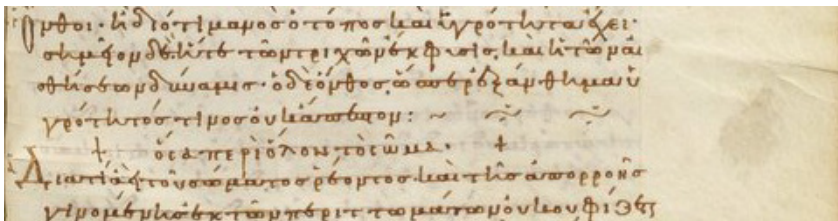 ονθοι· ἢ διότι μανὸς ὁ τόπος καὶ ὑγρότητα ἔχει·
σημεῖον δὲ ἥτε τῶν τριχῶν ἔκφυσις, καὶ ἡ τῶν αἰ
σθήσεων δύναμις· ὁ δὲ ἴονθος, ὥσπερ ἐξάνθημα ὑ
γρότητός τινος ἄπεπτον:
ὅσα περὶ ὅλον τὸ σῶμα·
Διατί ἀεὶ τοῦ σώματος ῥέοντος· καὶ τῆς ἀπορροῆς
γινομένης ἐκ τῶν περιττωμάτων οὐ κουφίζεται